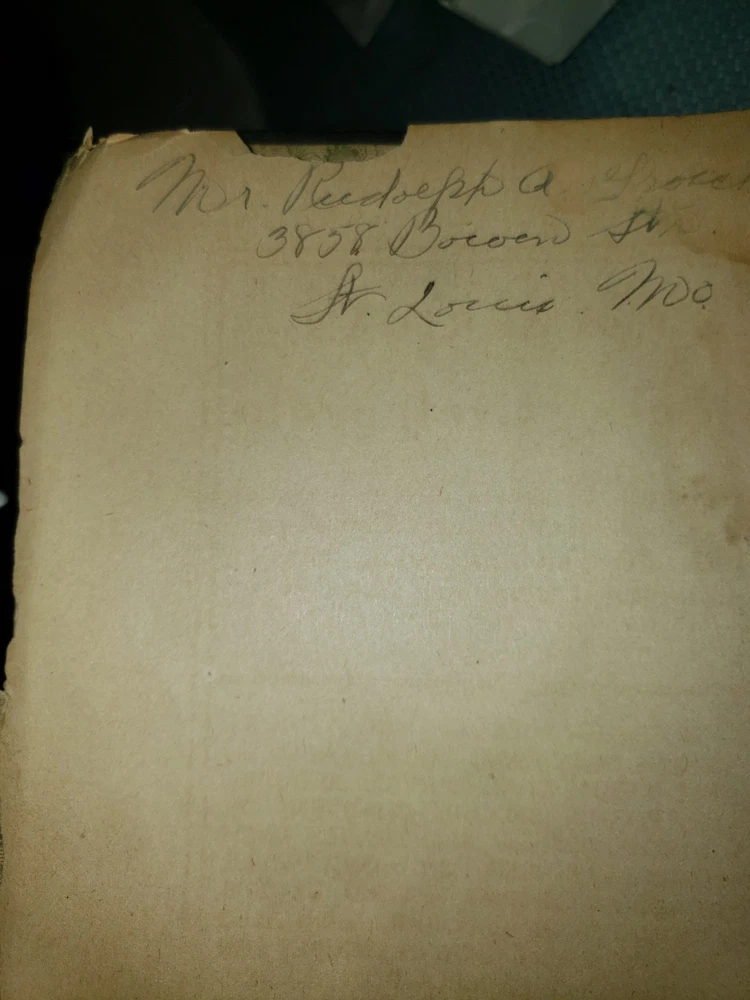 Mr. Rudolph A.
3858 Bowen St.
St. Louis. Mo.